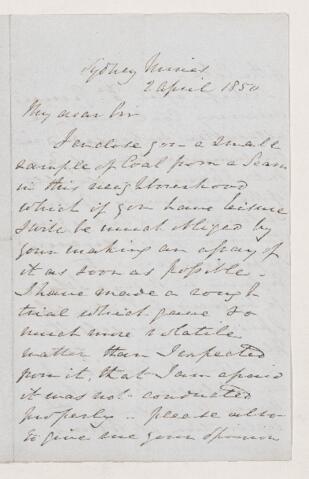 Sydney Mines
2 April 1850
My dear Sir
I enclose you a small
sample of Coal from a Seam
in this neighbourhood
which if you have leisure
I will be much obliged by
your making an assay of
it as soon as possible -
I have made a rough
trial which gave so
much more volatile
matter than I expected
from it, that I am afraid
it was not conducted
properly - please also
to give me your opinion